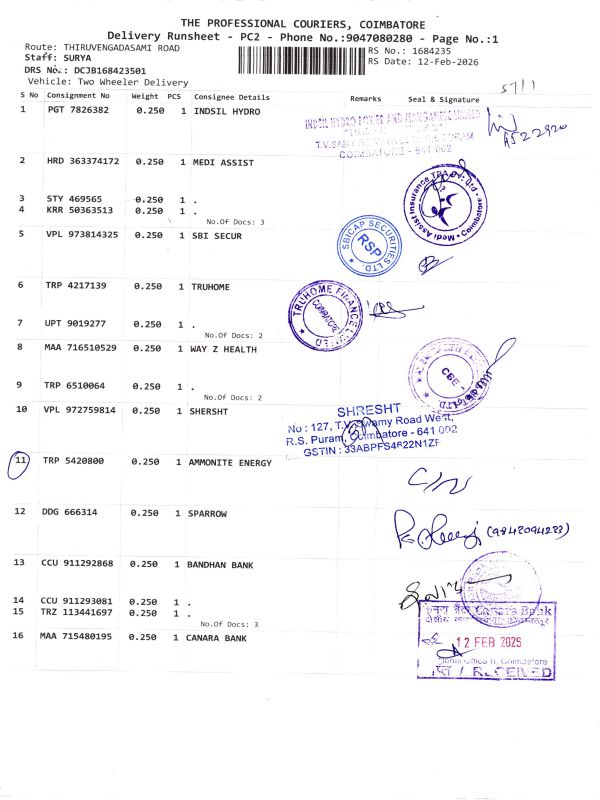 THE PROFESSIONAL COURIERS, COIMBATORE
Delivery Runsheet - PC2 - Phone No.:9047080280 - Page No.:1
Route: THIRUVENGADASAMI ROAD
RS No.: 1684235
Staff: SURYA
RS Date: 12-Feb-2026
DRS No.: DCJB168423501
Vehicle: Two Wheeler Delivery
S No Consignment No Weight PCS Consignee Details Remarks Seal & Signature
1 PGT 7826382 0.250 1 INDSIL HYDRO
INDSIL HYDRO POWER AND MANGANESE LIMITED
COIMBATORE - 641 002
2 HRD 363374172 0.250 1 MEDI ASSIST
Medi Assist Insurance TPA Pvt. Ltd - Coimbatore
3 STY 469565 0.250 1 .
4 KRR 50363513 0.250 1 .
No.Of Docs: 3
5 VPL 973814325 0.250 1 SBI SECUR
SBICAP SECURITIES LTD
RSP
6 TRP 4217139 0.250 1 TRUHOME
TRUHOME FINANCE LIMITED
COIMBATORE
7 UPT 9019277 0.250 1 .
No.Of Docs: 2
8 MAA 716510529 0.250 1 WAY Z HEALTH
CBE
9 TRP 6510064 0.250 1 .
No.Of Docs: 2
10 VPL 972759814 0.250 1 SHERSHT
SHRESHT
No : 127, T.V. Swamy Road West,
R.S. Puram, Coimbatore - 641 002
GSTIN : 33ABPFS4622N1ZF
11 TRP 5420800 0.250 1 AMMONITE ENERGY
12 DDG 666314 0.250 1 SPARROW
13 CCU 911292868 0.250 1 BANDHAN BANK
14 CCU 911293081 0.250 1 .
15 TRZ 113441697 0.250 1 .
No.Of Docs: 3
16 MAA 715480195 0.250 1 CANARA BANK
Canara Bank
12 FEB 2025
Coimbatore
RECEIVED